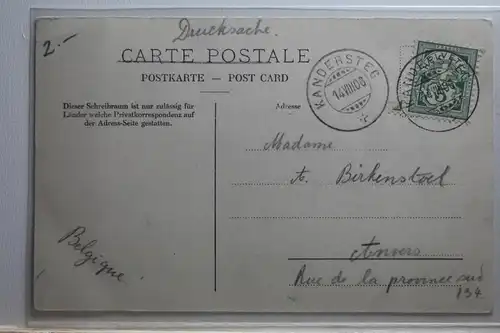 2.-
Drucksache.
CARTE POSTALE
POSTKARTE – POST CARD
KANDERSTEG
14 VIII 06
Dieser Schreibraum ist nur zulässig für
Länder welche Privatkorrespondenz auf
der Adress-Seite gestatten.
Adresse
Madame
A. Birkenstoel
Anvers
Rue de la province sud
134
Belgique